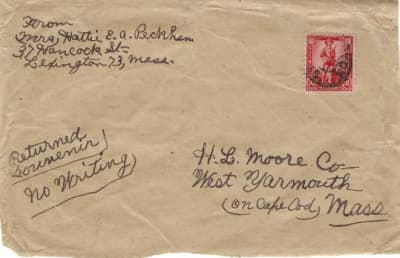 From
Mrs, Hattie E. A. Peckham
37 Hancock St-
Lexington 73, Mass.
Returned
Souvenir
No Writing
H. L. Moore Co-
West Yarmouth
(on Cape Cod) Mass.